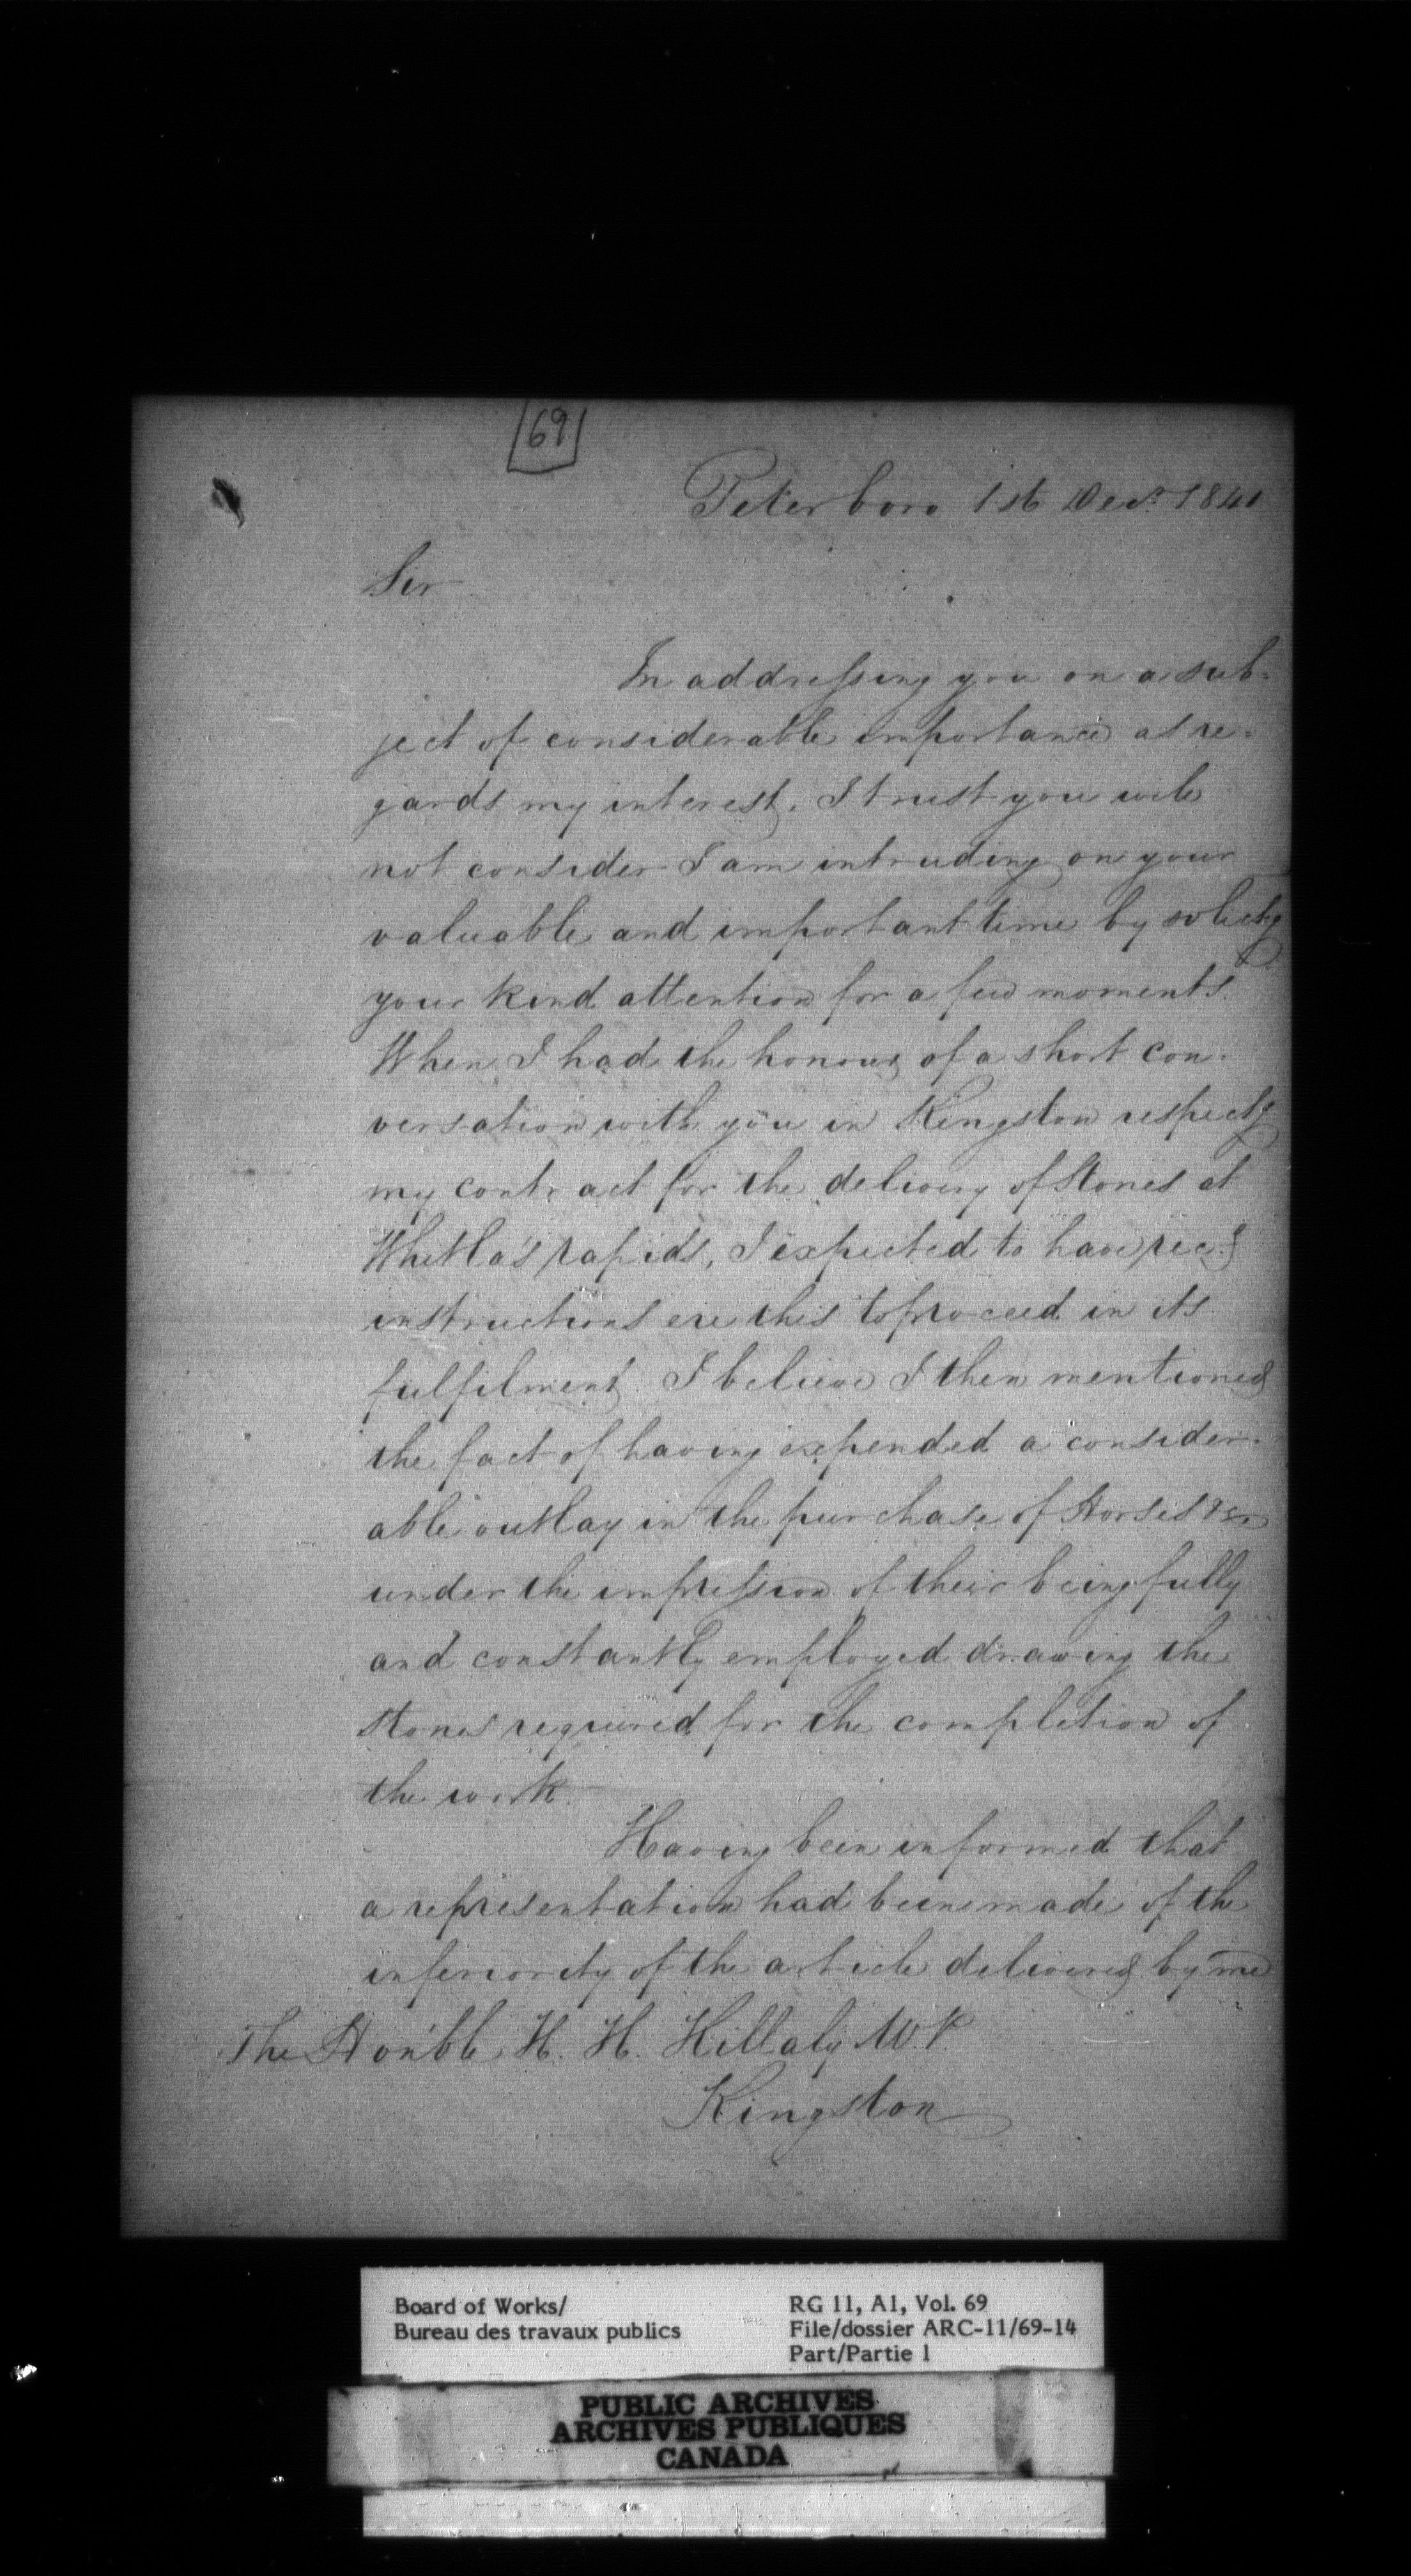 69
Peterboro 1st Decr. 1841
Sir
In addressing you on a sub-
ject of considerable importance as re-
gards my interest, I trust you will
not consider I am intruding on your
valuable and important time by solicitg
your kind attention for a few moments.
When I had the honour of a short con-
versation with you in Kingston respectg
my contract for the delivery of Stones at
Whitla's rapids, I expected to have recd
instructions ere this to proceed in its
fulfilment. I believe I then mentioned
the fact of having expended a consider-
able outlay in the purchase of Horses &c
under the impression of their being fully
and constantly employed drawing the
stones required for the completion of
the work.
Having been informed that
a representation had been made of the
inferiority of the article delivered by me
The Hon'ble H. H. Killaly M.P.
Kingston
Board of Works/
Bureau des travaux publics
RG 11, A1, Vol. 69
File/dossier ARC-11/69-14
Part/Partie 1
PUBLIC ARCHIVES
ARCHIVES PUBLIQUES
CANADA